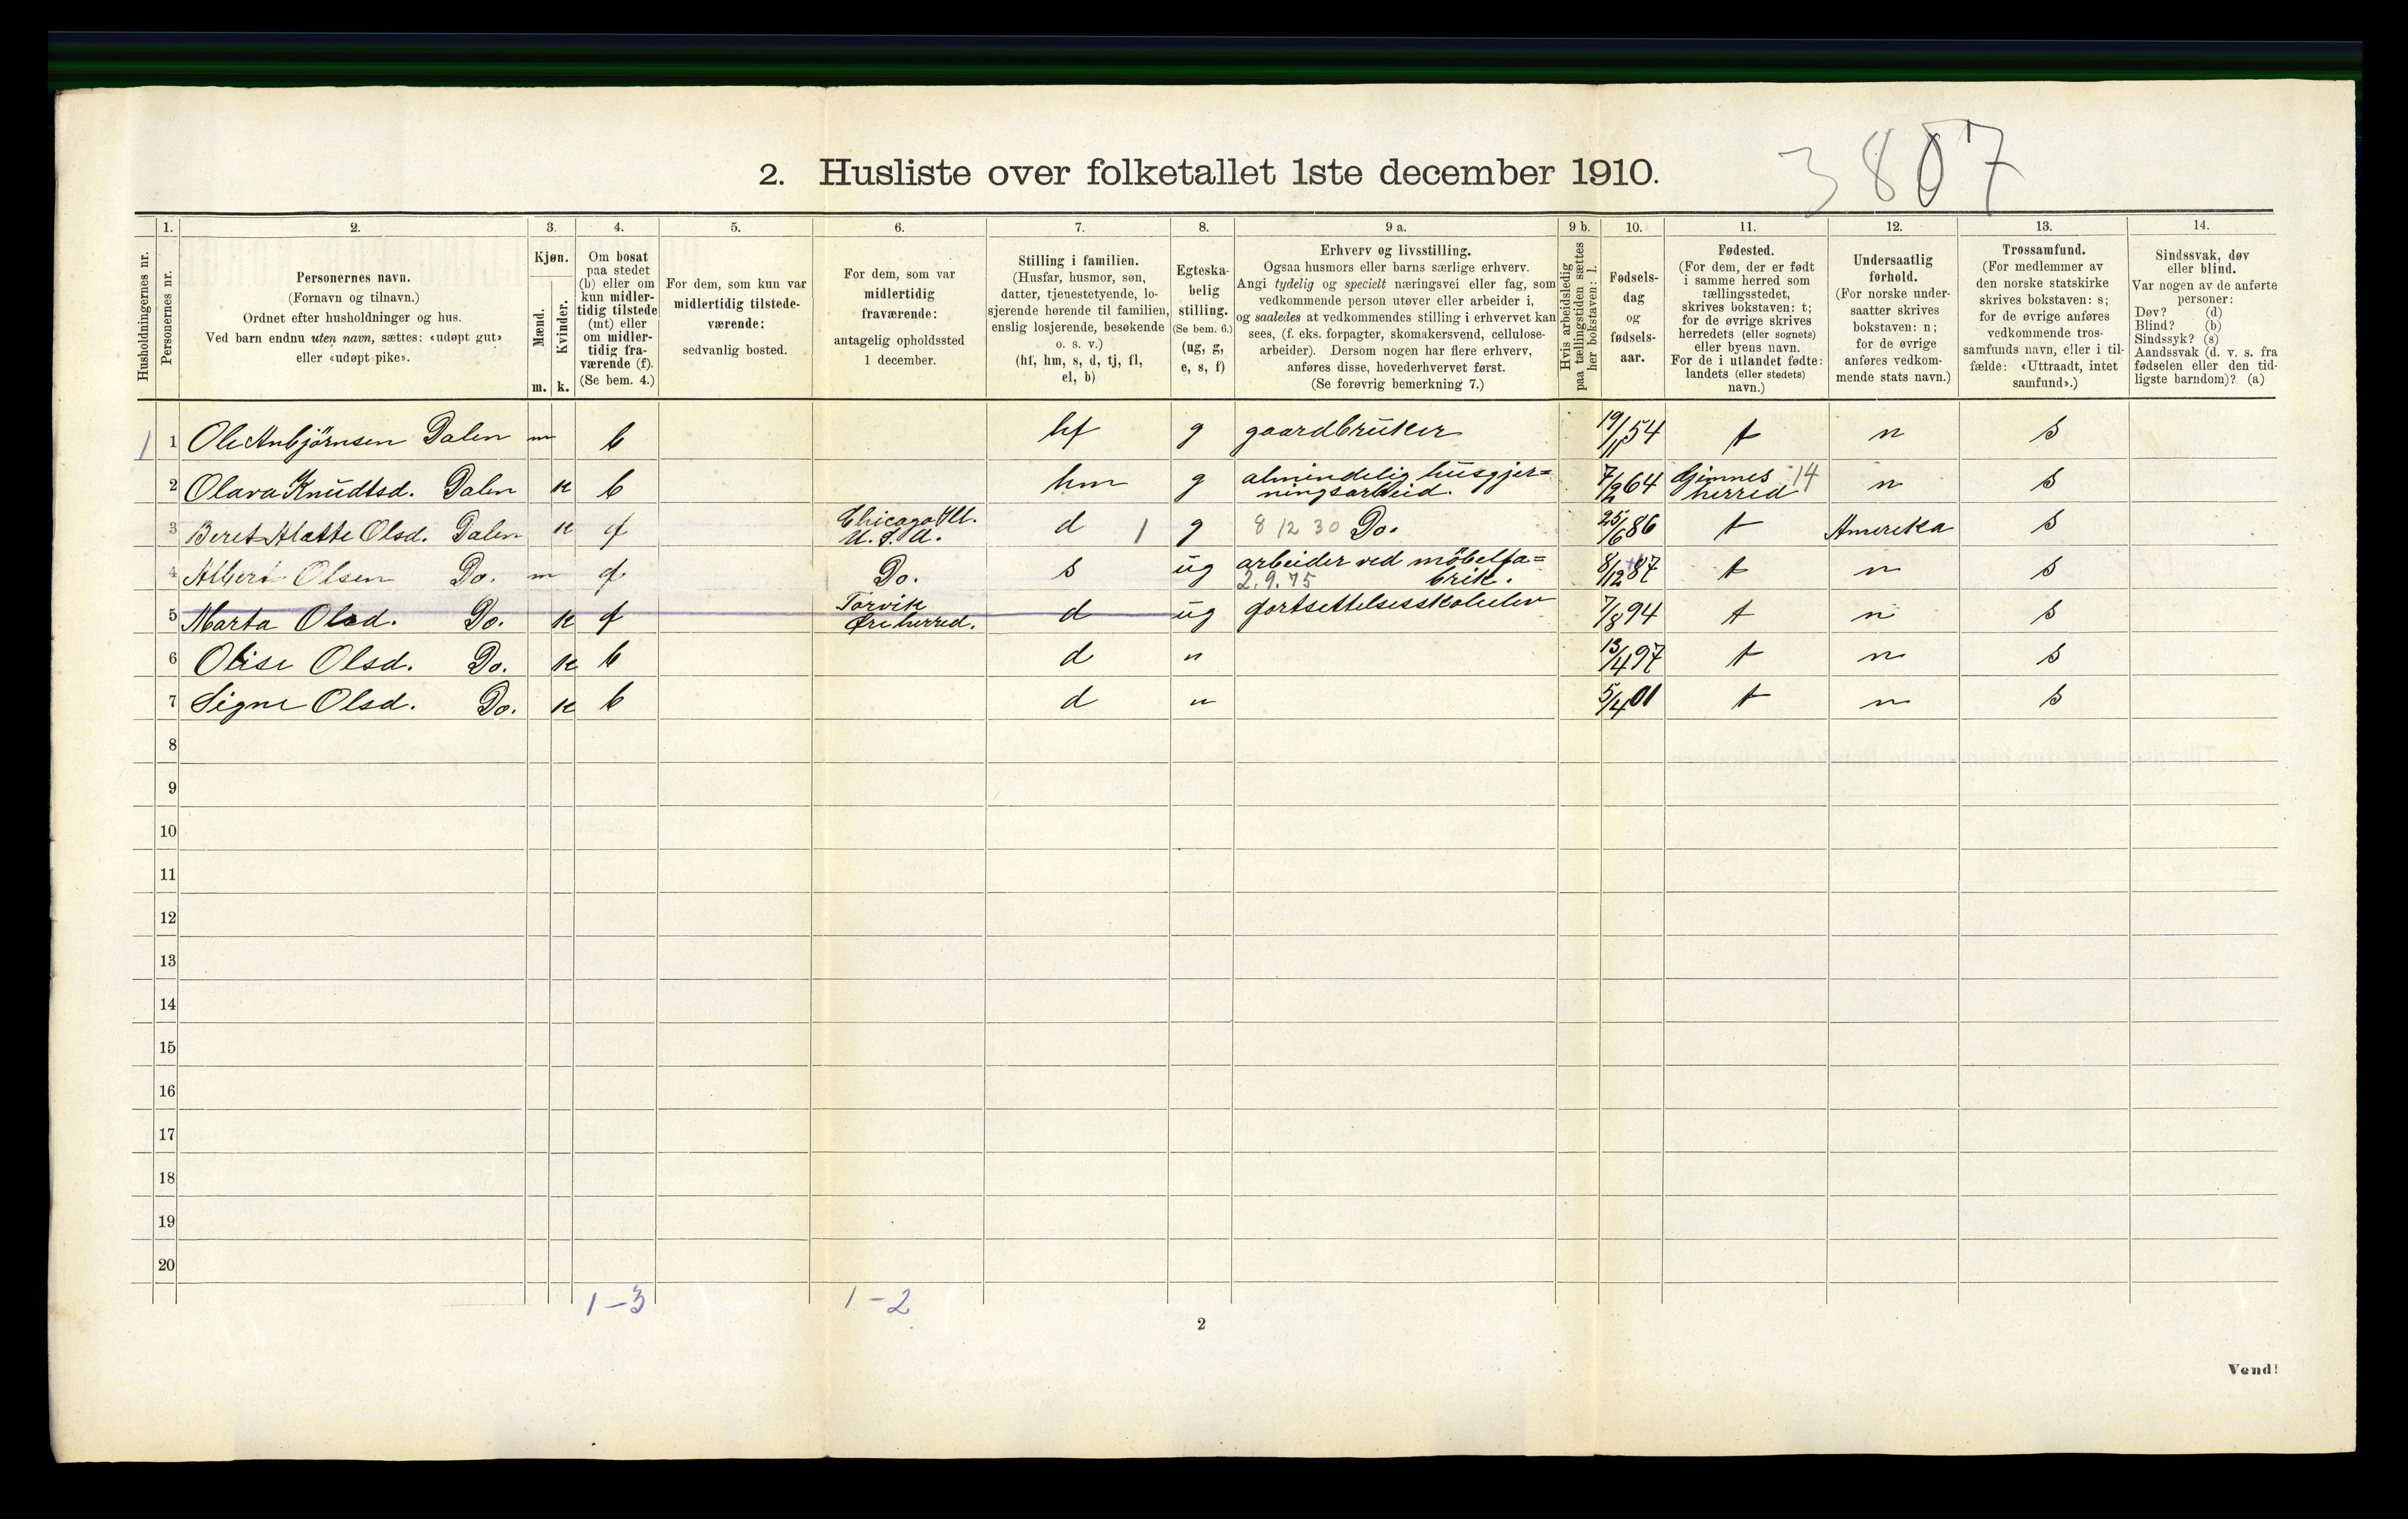 3807
2. Husliste over folketallet 1ste december 1910.
Husholdningernes nr.
1.
Personernes nr.
2.
Personernes navn.
(Fornavn og tilnavn.)
Ordnet efter husholdninger og hus.
Ved barn endnu uten navn, sættes: «udøpt gut»
eller «udøpt pike».
3.
Kjøn.
Mænd.
Kvinder.
m. k.
4.
Om bosat
paa stedet
(b) eller om
kun midler-
tidig tilstede
(mt) eller
om midler-
tidig fra-
værende (f).
(Se bem. 4.)
5.
For dem, som kun var
midlertidig tilstede-
værende:
sedvanlig bosted.
6.
For dem, som var
midlertidig
fraværende:
antagelig opholdssted
1 december.
7.
Stilling i familien.
(Husfar, husmor, søn,
datter, tjenestetyende, lo-
sjerende hørende til familien,
enslig losjerende, besøkende
o. s. v.)
(hf, hm, s, d, tj, fl,
el, b)
8.
Egteska-
belig
stilling.
(Se bem. 6.)
(ug, g,
e, s, f)
9 a.
Erhverv og livsstilling.
Ogsaa husmors eller barns særlige erhverv.
Angi tydelig og specielt næringsvei eller fag, som
vedkommende person utøver eller arbeider i,
og saaledes at vedkommendes stilling i erhvervet kan
sees, (f. eks. forpagter, skomakersvend, cellulose-
arbeider). Dersom nogen har flere erhverv,
anføres disse, hovederhvervet først.
(Se forøvrig bemerkning 7.)
9 b.
Hvis arbeidsledig
paa tællingstiden sættes
her bokstaven: l.
10.
Fødsels-
dag
og
fødsels-
aar.
11.
Fødested.
(For dem, der er født
i samme herred som
tællingsstedet,
skrives bokstaven: t;
for de øvrige skrives
herredets (eller sognets)
eller byens navn.
For de i utlandet fødte:
landets (eller stedets)
navn.)
12.
Undersaatlig
forhold.
(For norske under-
saatter skrives
bokstaven: n;
for de øvrige
anføres vedkom-
mende stats navn.)
13.
Trossamfund.
(For medlemmer av
den norske statskirke
skrives bokstaven: s;
for de øvrige anføres
vedkommende tros-
samfunds navn, eller i til-
fælde: «Uttraadt, intet
samfund».)
14.
Sindssvak, døv
eller blind.
Var nogen av de anførte
personer:
Døv? (d)
Blind? (b)
Sindssyk? (s)
Aandssvak (d. v. s. fra
fødselen eller den tid-
ligste barndom)? (a)
1 1 Ole Anbjørnsen Dalen m b hf g gaardbruker 19/11 54 t n s
2 Olava Knudtsd. Dalen k b hm g almindelig husgjer=
ningsarbeid. 7/2 64 Gjimnes 14
herred n s
3 Beret Olsd. Dalen k f Chicago Ill.
U. S. A. d 1 g 8 12 30 Do. 25/6 86 t Amerika s
4 Albert Olsen Do. m f Do. s ug arbeider ved möbelfa=
2.9.75 brik. 8/12 87 t n s
5 Marta Olsd. Do. k f Torvik
Øre herred. d ug fortsettelsesskoleelev 7/8 94 t n s
6 Olise Olsd. Do. k b d " 13/4 97 t n s
7 Signe Olsd. Do. k b d " 5/4 01 t n s
8
9
10
11
12
13
14
15
16
17
18
19
20
1-3 1-2
2
Vend!